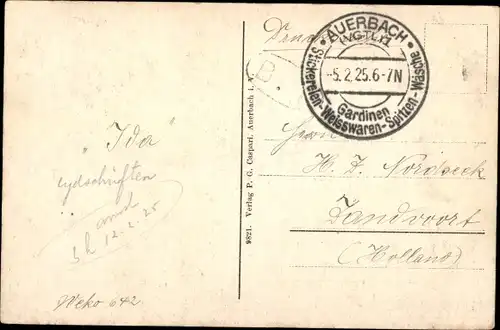 "Ida"
tydschriften
12.2.25
Weko 642
9821. Verlag P. G. Caspari, Auerbach i. V.
B
AUERBACH
(VGTL.)1
-5.2.25.6-7N
Gardinen
Stickereien-Weisswaren-Spitzen-Wäsche
Herrn
H. D. Nordbeck
Zandvoort
(Holland)